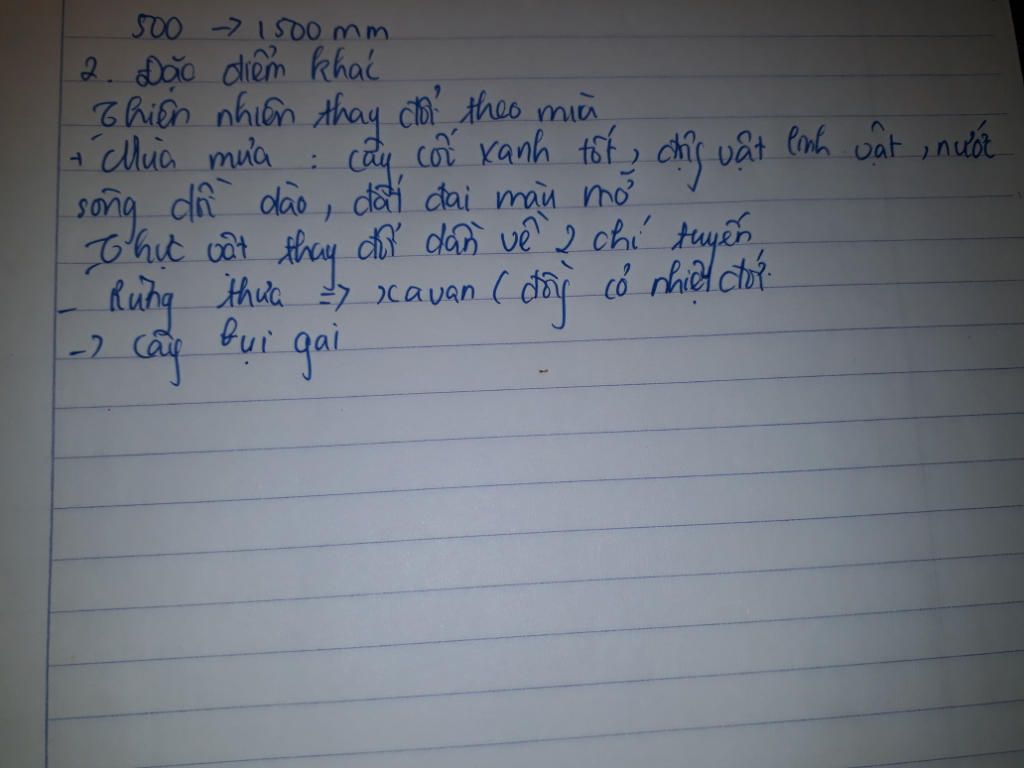 500 → 1500 mm
2. Đặc điểm khác
Thiên nhiên thay đổi theo mùa
+ Mùa mưa : cây cối xanh tốt, động vật linh vật, nước
sông dồi dào, đất đai màu mỡ
Thực vật thay đổi dần về 2 chí tuyến
- Rừng thưa => xavan ( đồng cỏ nhiệt đới.
-> cây bụi gai